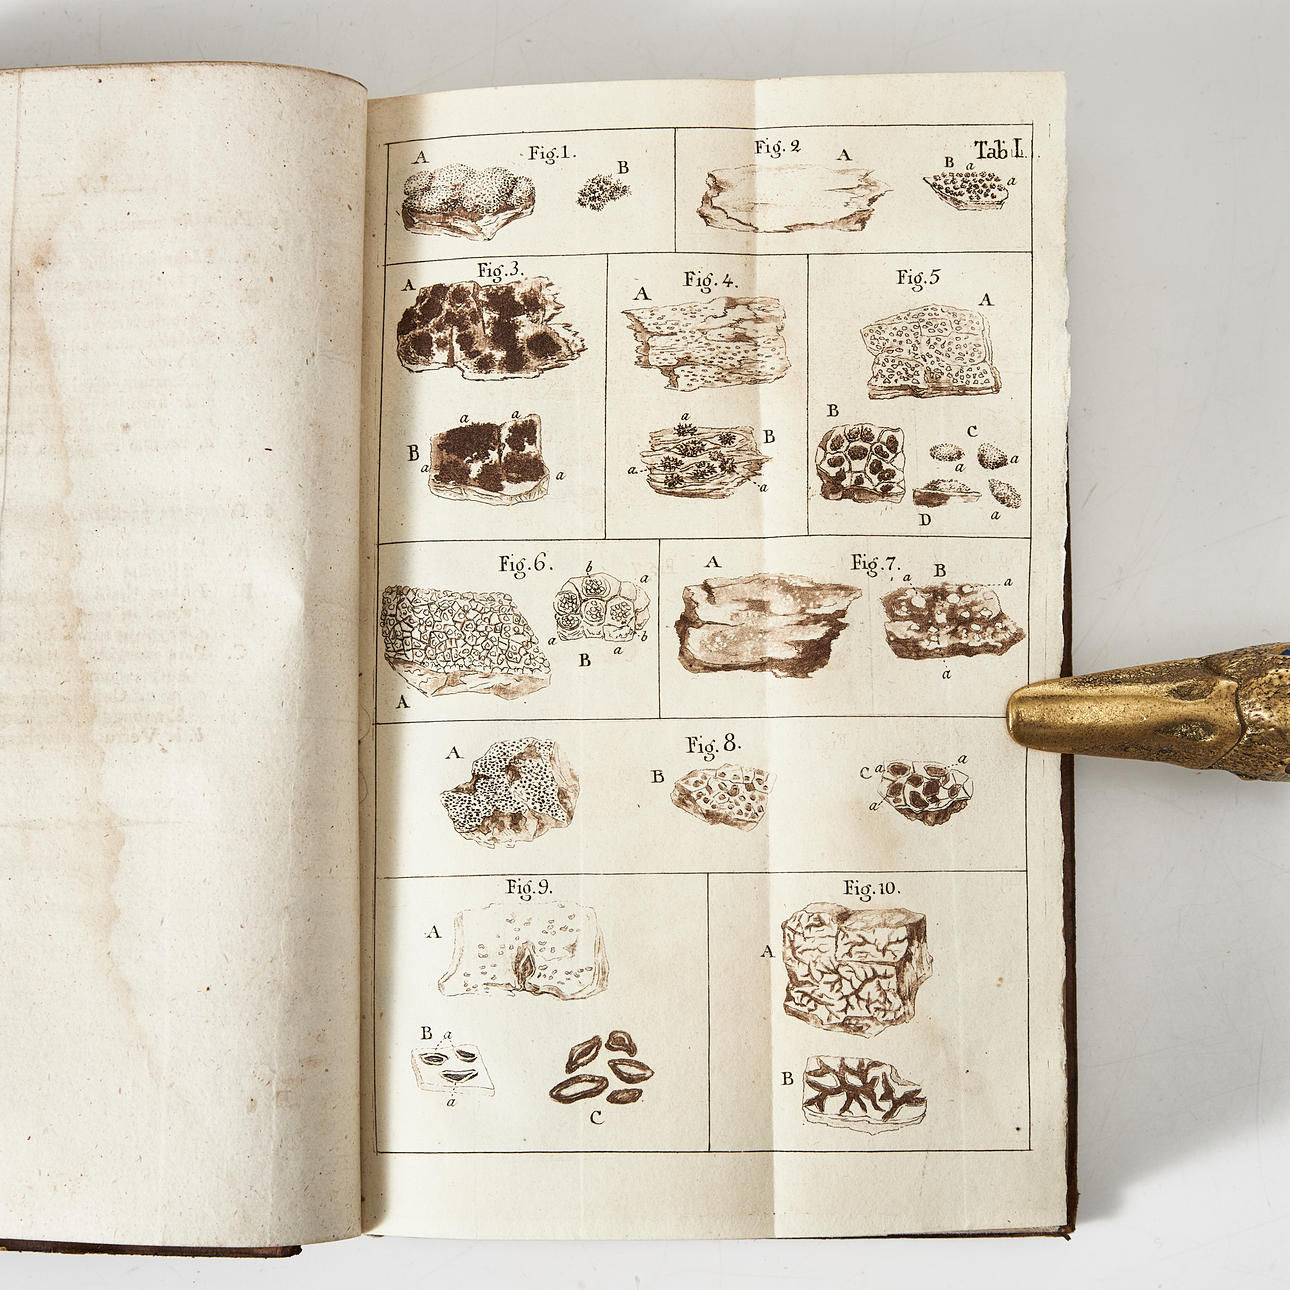 Fig.1.
A
B
Fig. 2
A
B
a
a
Tab I.
Fig.3.
A
B
a
a
a
a
Fig. 4.
A
a
B
a
a
Fig.5
A
B
C
a
a
a
D
Fig.6.
A
b
a
a
B
a
b
Fig.7.
A
a
B
a
a
Fig.8.
A
B
C
a
a
a
Fig.9.
A
B
a
a
C
Fig.10.
A
B